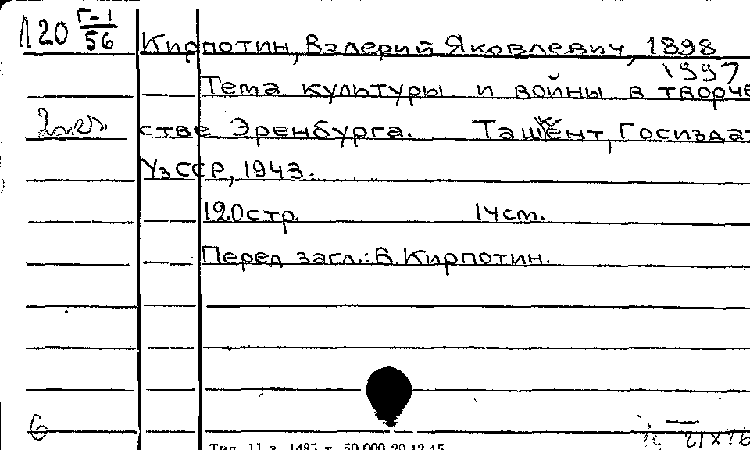 Л20 Г-1/56
Кирпотин, Валерий Яковлевич, 1898
1997
Тема культуры и войны в творче
2экз
стве Эренбурга. Ташкент, Госиздат
УзССР, 1943.
120стр. 14cm.
Перед загл.: В. Кирпотин.
6
21/X 76
Тип. 11 з. 1495 т. 50.000 20.12.45